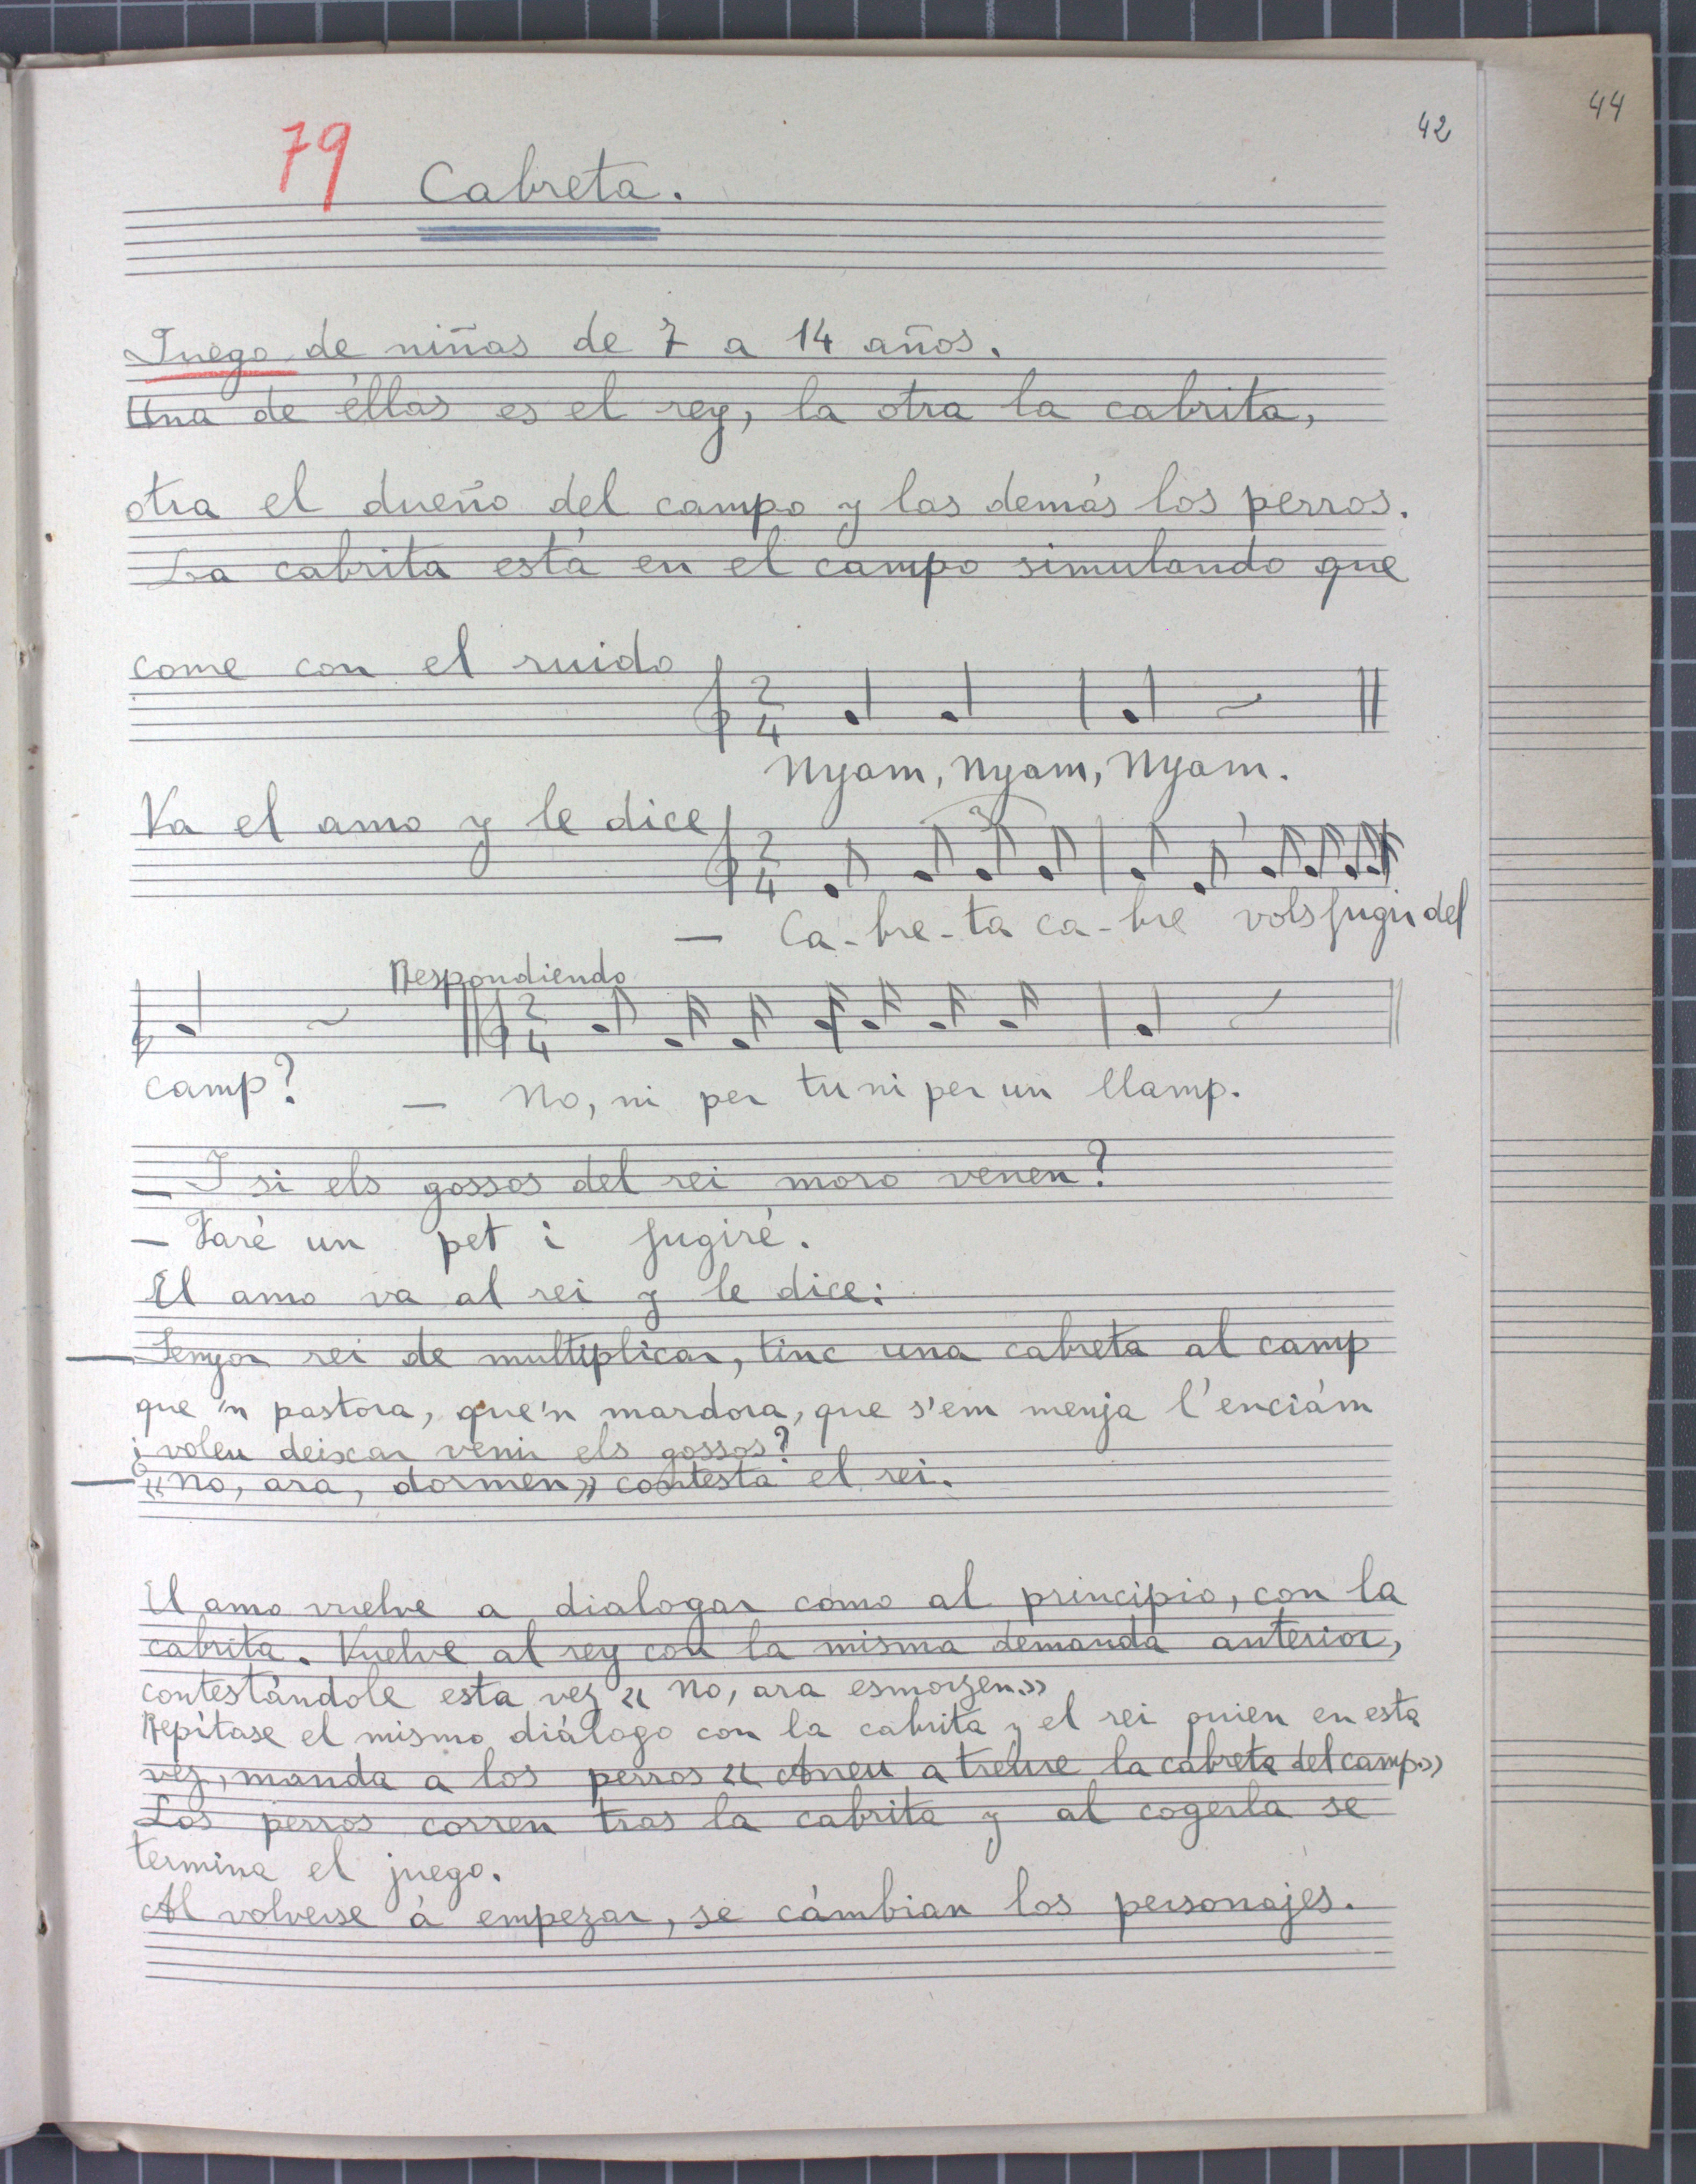 44
42
79 Cabreta.
Juego de niñas de 7 a 14 años.
Una de éllas es el rey, la otra la cabrita,
otra el dueño del campo y las demás los perros.
La cabrita está en el campo simulando que
come con el ruido
2 4
Nyam, nyam, Nyam.
Va el amo y le dice
3
2 4
— Ca-bre-ta ca-bre vols fugir del
Respondiendo
2 4
camp? — No, ni per tu ni per un llamp.
— I si els gossos del rei moro venen?
— Faré un pet i fugiré.
El amo va al rei y le dice:
— Senyor rei de multiplicar, tinc una cabreta al camp
que 'n pastora, que'n mardora, que s'em menja l'enciám
i voleu deixar venir els gossos?
— «No, ara, dormen» contesta el rei.
El amo vuelve a dialogar como al principio, con la
cabrita. Vuelve al rey con la misma demanda anterior,
contestándole esta vez « No, ara esmorzen.»
Repítase el mismo diálogo con la cabrita y el rei quien en esta
vez, manda a los perros « Aneu a treure la cabreta del camp.»
Los perros corren tras la cabrita y al cogerla se
termina el juego.
Al volverse á empezar, se cámbian los personajes.